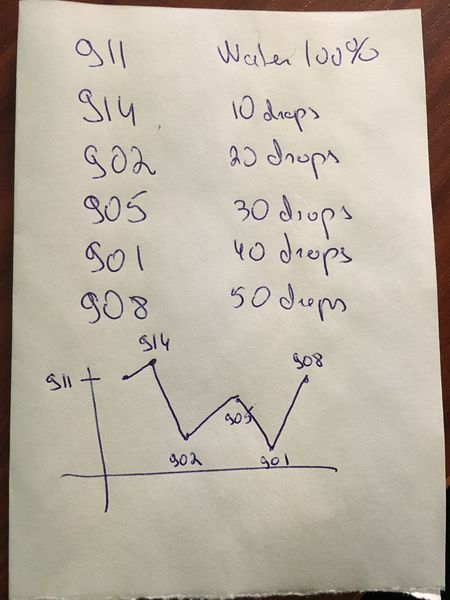 911 Water 100%
914 10 drops
902 20 drops
905 30 drops
901 40 drops
908 50 drops
914
908
911
905
902
901